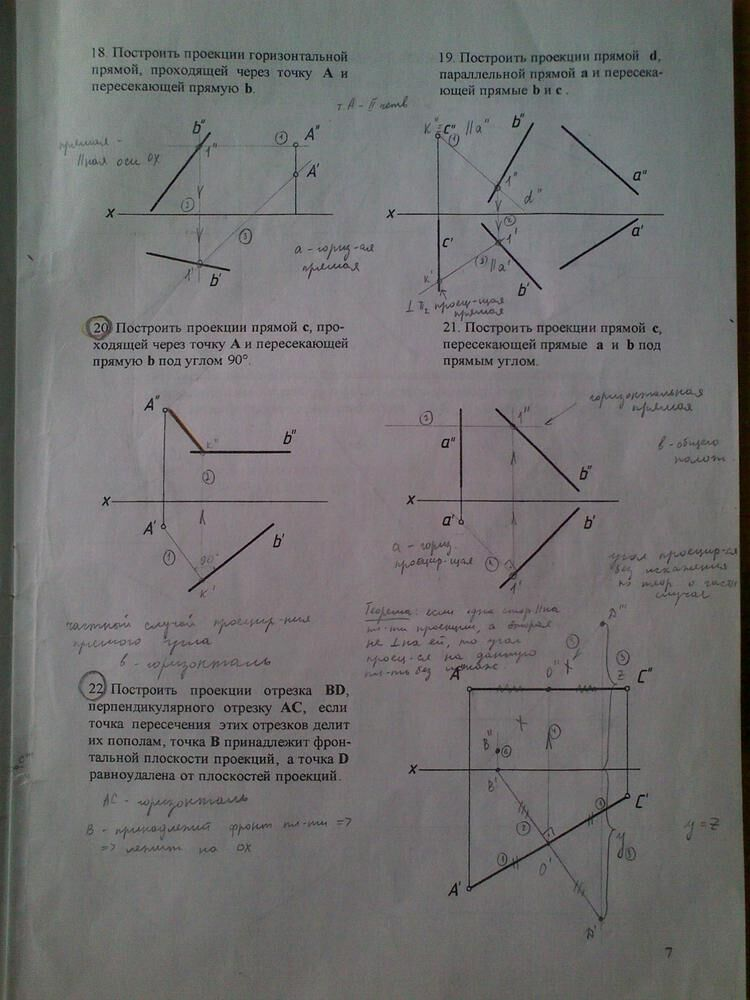 18. Построить проекции горизонтальной
прямой, проходящей через точку A и
пересекающей прямую b.
т. A - II четв
прямая -
||ная оси OX
b" 1" ① A"
A'
②
x
③
1' b'
a - гориз-ая
прямая
19. Построить проекции прямой d,
параллельной прямой a и пересека-
ющей прямые b и c .
K" ≡ c" || a" b"
① a"
1" d"
x ②
c' 1' a'
(3) || a'
K' b'
⊥ П₂ проец-щая
прямая
20. Построить проекции прямой c, про-
ходящей через точку A и пересекающей
прямую b под углом 90°.
A"
K" b"
②
x
A' b'
① 90°
K'
частный случай проецир-ния
прямого угла
b - горизонталь
21. Построить проекции прямой c,
пересекающей прямые a и b под
прямым углом.
горизонтальная
прямая
② 1"
a"
b - общего
полож.
b"
x
a' b'
a - гориз.
проецир-щая
1'
угол проецир-ся
без искажения
по теор о частн
случае
Теорема: если одна стор || на
пл-ти проекции, а вторая
не ⊥ на ей, то угол
проец-ся на данную
пл-ть без искаж.
22. Построить проекции отрезка BD,
перпендикулярного отрезку AC, если
точка пересечения этих отрезков делит
их пополам, точка B принадлежит фрон-
тальной плоскости проекций, а точка D
равноудалена от плоскостей проекций.
AC - горизонталь
B - принадлежит фронт пл-ти =>
=> лежит на OX
D"
A" O" C"
z
B" ⑥
x
B'
C'
② y y = z
① O'
A'
D'
7